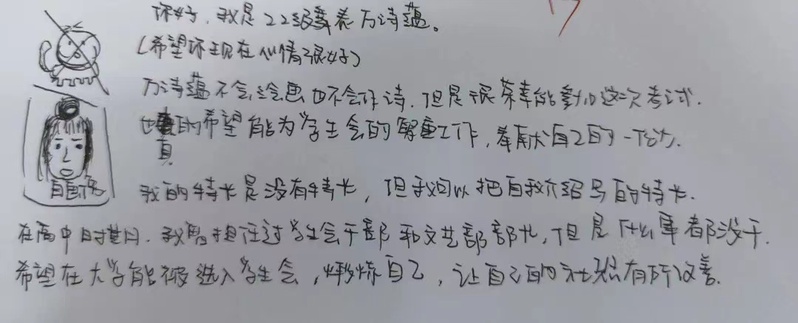 你好，我是22级舞表万诗蕴。
（希望你现在心情很好）
万诗蕴不会绘画也不会作诗，但是很荣幸能参加这次考试．
也真的希望能为学生会的工作，奉献自己的一份力．
自画像
我的特长是没有特长，但我可以把自我介绍写的特长．
在高中时期，我曾担任过学生会干部和文艺部部长，但是什么事都没干．
希望在大学能够选入学生会，锻炼自己，让自己的社恐有所改善．